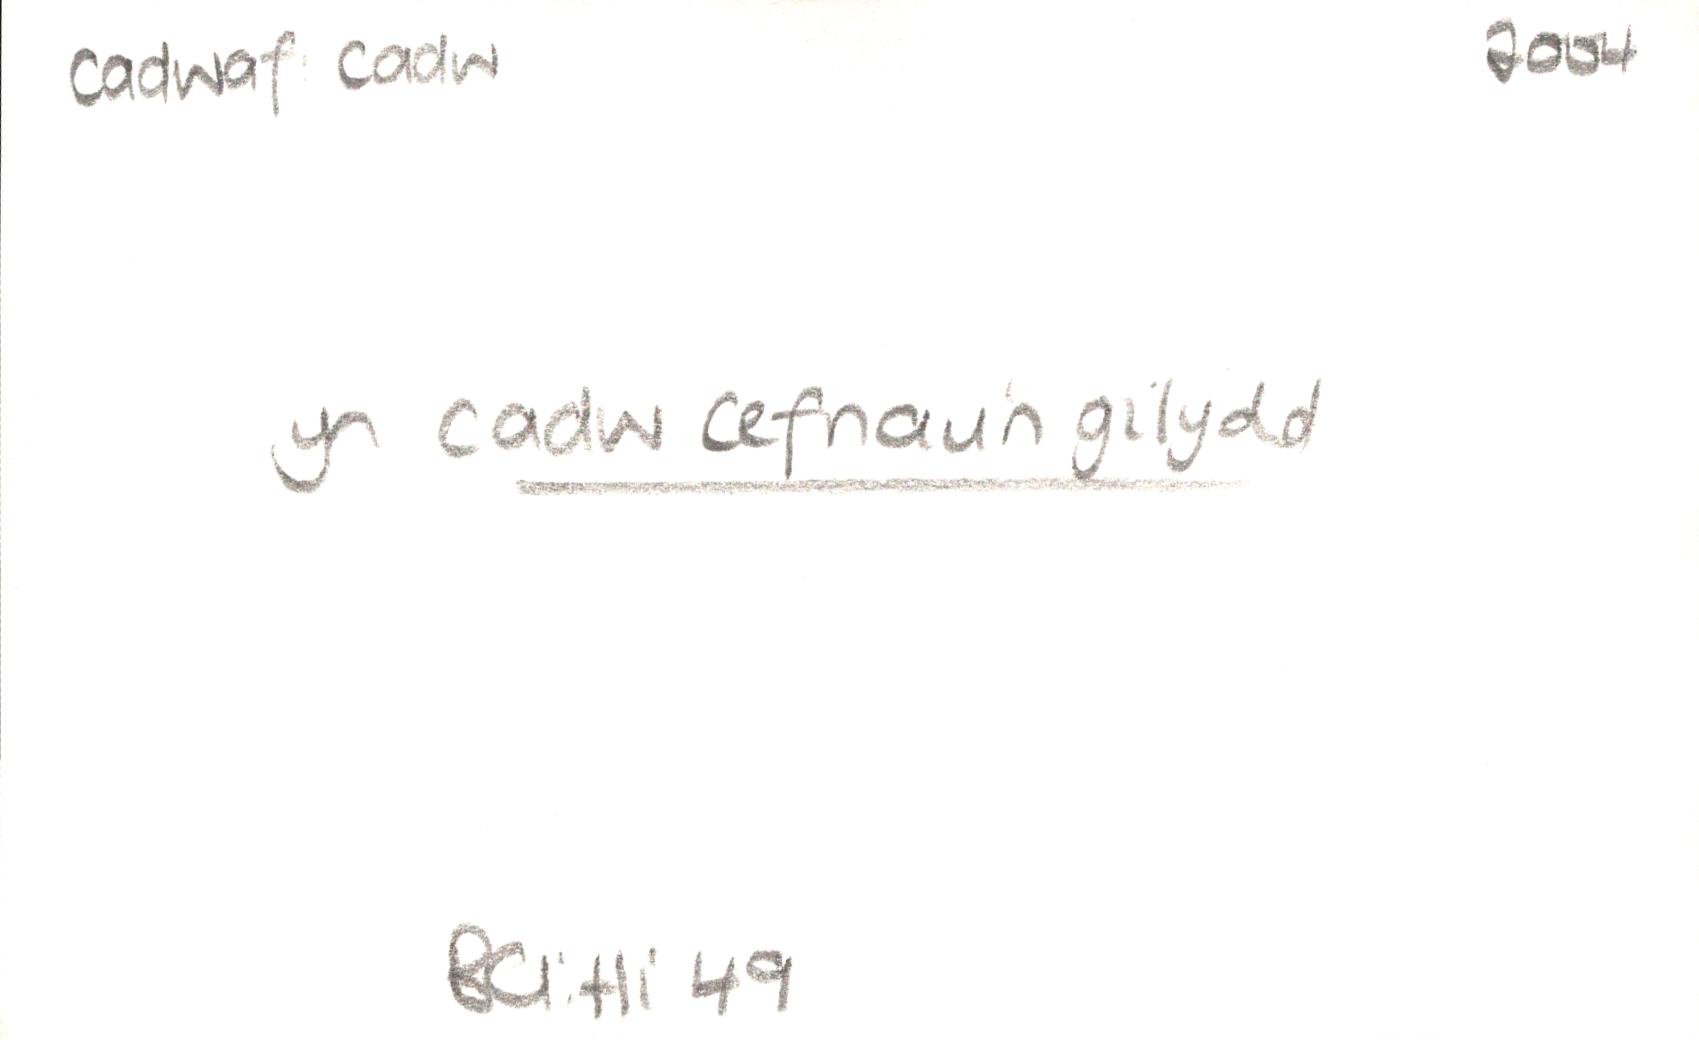 cadwaf: cadw 2004
yn cadw cefnau'n gilydd
BCI: HI 49